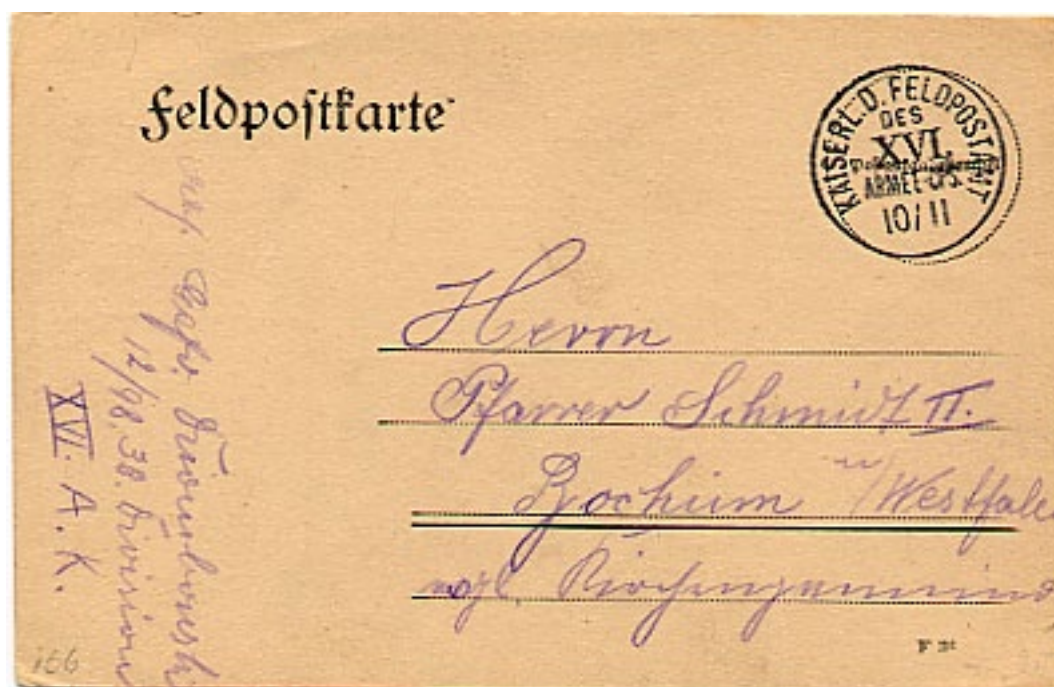 Feldpostkarte
KAISERL. D. FELDPOSTAMT
DES
XVI.
ARMEE-CPS.
10/11
Herrn
Pfarrer Schmidt II.
Bochum i/Westfale
evgl. Kirchengemeind
12/98. 38. Division
XVI. A. K.
166